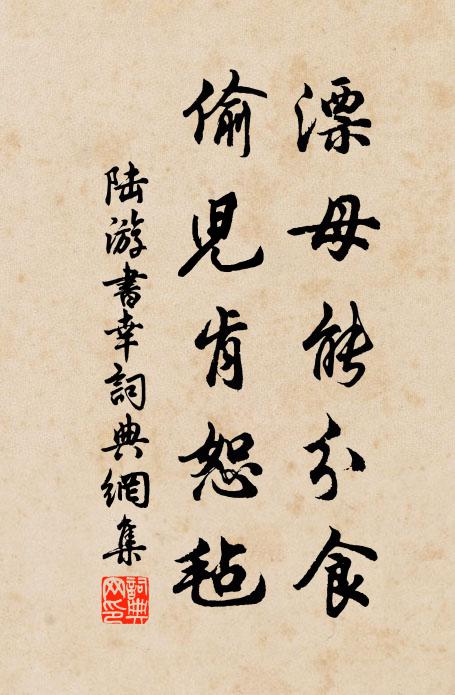 漂母能分食
偷兒肯恕毡
陸游書幸詞典網集
詞典網印